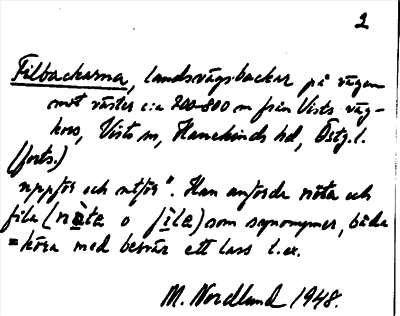 2
Filbackarna, landsvägsbackar på vägen
mot väster c:a 200-800 m från Vists väg-
kors, Vists sn, Hanekinds hd, Östg.l.
(forts.)
uppför och utför". Han anförde nöta och
fila (nöta o fila) som synonymer, båda
= köra med besvär ett lass t.ex.
M. Nordlund 1948.